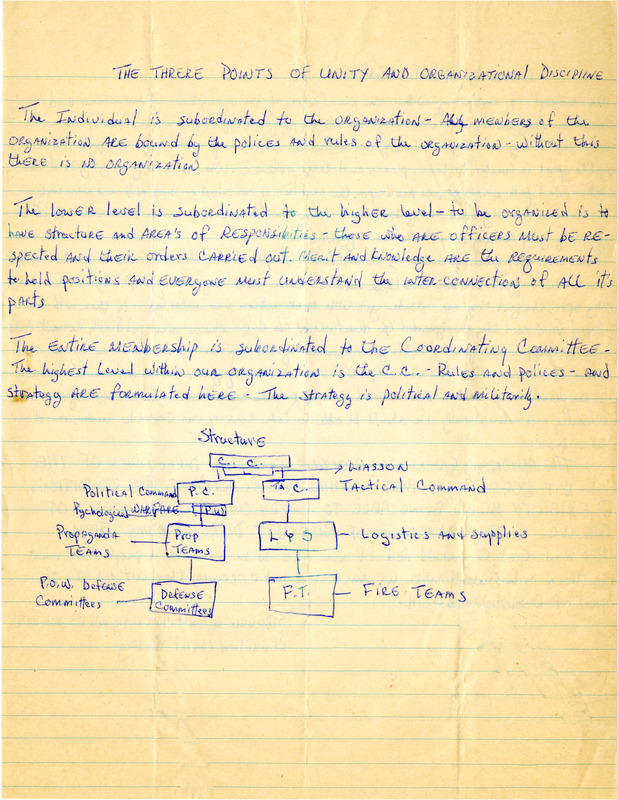 THE THRERE POINTS OF UNITY AND ORGANIZATIONAL DISCIPLINE
The INDIVIDUAL is subordinated to the organization - MEMBERS of the
ORGANIZATION ARE bound by the polices and rules of the organization - without this
there is no organization
The lower level is subordinated to the higher level - to be organized is to
have structure and AREA'S of RESPONSIBITIES - those who ARE officers Must be RE-
spected and their orders CARRIED out. Merit and Knowledge ARE the requirements
to hold positions and everyone must understand the inter-connection of All it's
parts
The ENTIRE MEMBERSHIP is subordinated to the Coordinating Committee -
The highest Level within our organization is the C.C. - Rules and polices - and
strategy ARE formulated here - The strategy is political and militarily.
Structure
C. C.
LIASSON
Political Command P.C. Ta C. TACTICAL COMMAND
Pychological WARFARE P.W
Propaganda TEAMS Prop TEAMS L & S Logistics and Supplies
P.O.W. Defense Committees Defense Committees F.T. FIRE TEAMS